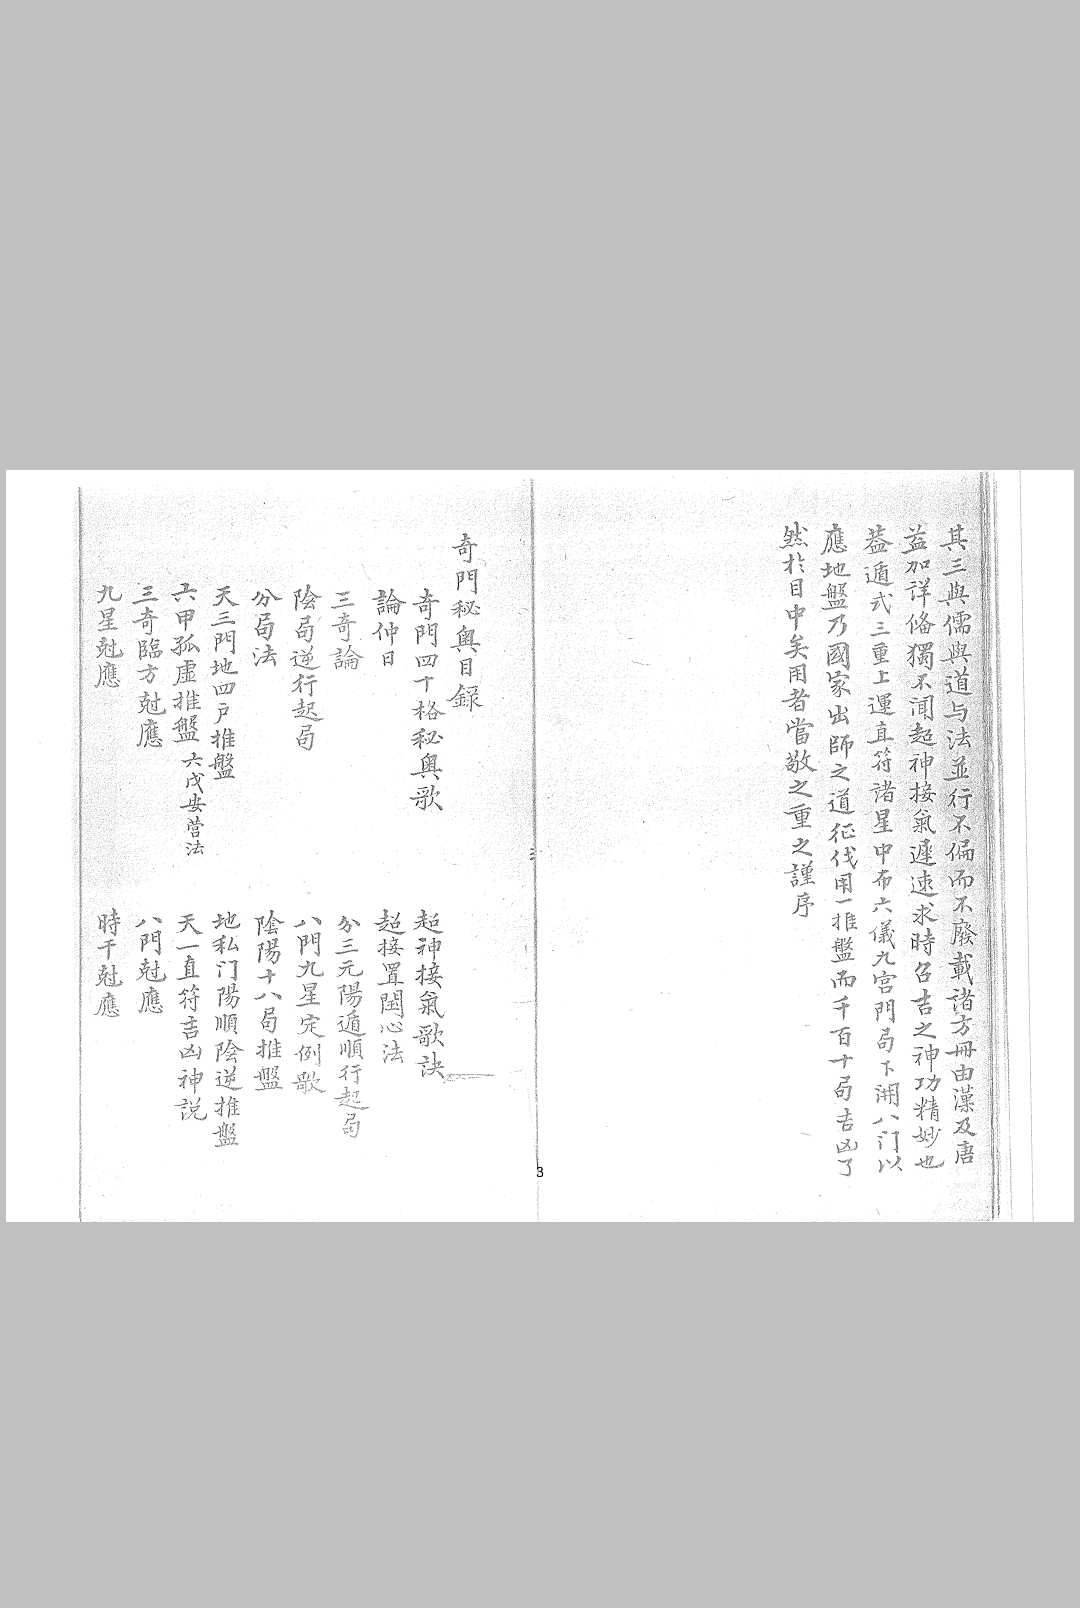 其三與儒與道与法並行不偏而不廢載諸方冊由漢及唐
益加詳俻獨不聞超神接氣遲速求時召吉之神功精妙也
葢遁式三重上運直符諸星中布六儀九宮門局下開八门以
應地盤乃國家出師之道征伐用一推盤而千百十局吉凶了
然於目中矣用者當敬之重之謹序
奇門秘奥目録
奇門四十格秘奥歌
超神接氣歌訣
論仲日
超接置閏心法
三奇論
分三元陽遁順行起局
陰局逆行起局
八門九星定例歌
分局法
陰陽十八局推盤
天三門地四户推盤
地私门陽順陰逆推盤
六甲孤虚推盤 六戊安营法
天一直符吉凶神説
三奇臨方尅應
八門尅應
九星尅應
時干尅應
3